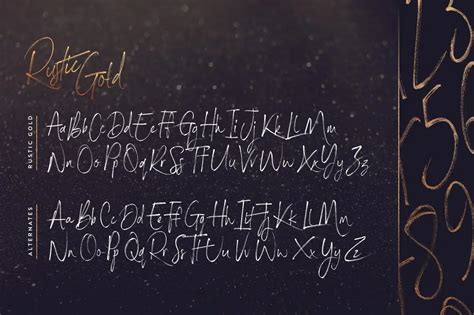 Rustic Gold
RUSTIC GOLD
AaBbCcDdEeFfGgHhIiJjKkLlMm
NnOoPpQqRrSsTtUuVvWwXxYyZz
ALTERNATES
AaBbCcDdEeFfGgHhIiJjKkLlMm
NnOoPpQqRrSsTtUuVvWwXxYyZz